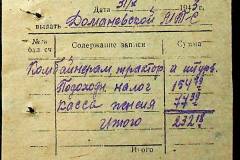 Дата 31/X 194 г.
выдать Домановской МТС
№№ бал. сч. Содержание записи Сумма
Комбайнерам трактор. и штурв.
Подоходн налог 154
касса пенсия 77
Итого 232 18